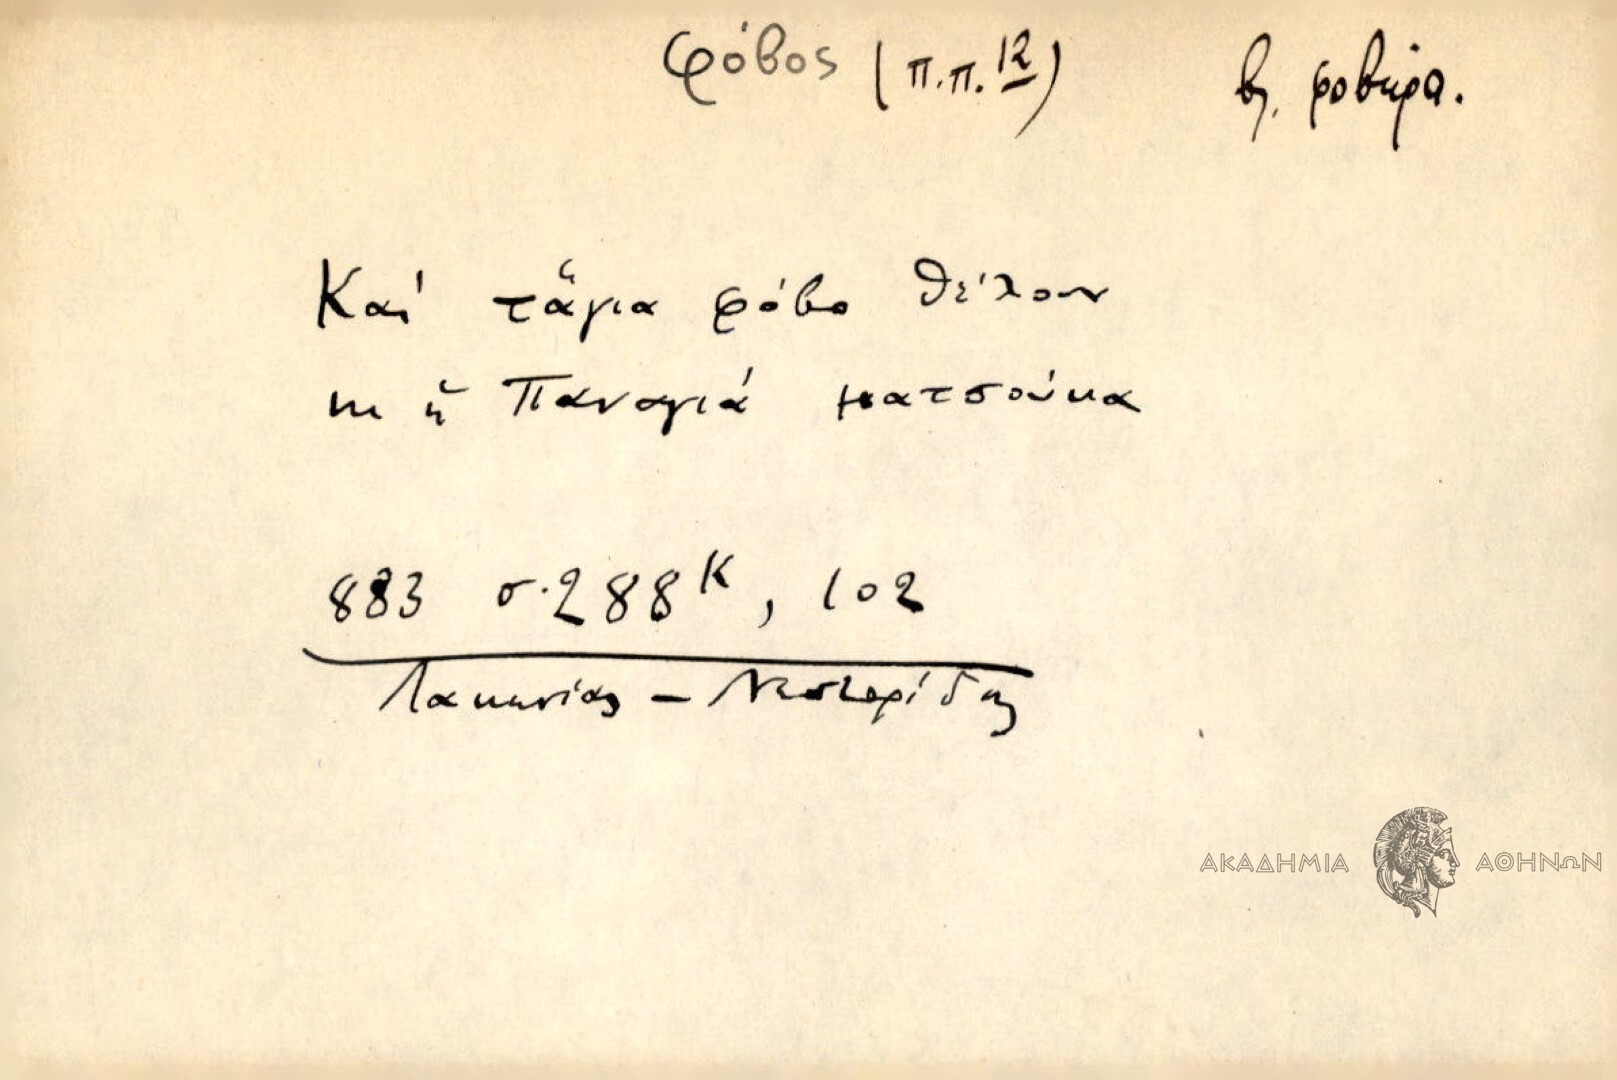 φόβος (π.π. 12) βλ. φοβέρα.
Καί τἅγια φόβο θέλουν
κι ἡ Παναγιά ματσούκα
883 σ. 288κ, 102
Λακωνίας – Νεστορίδης
ΑΚΑΔΗΜΙΑ ΑΘΗΝΩΝ